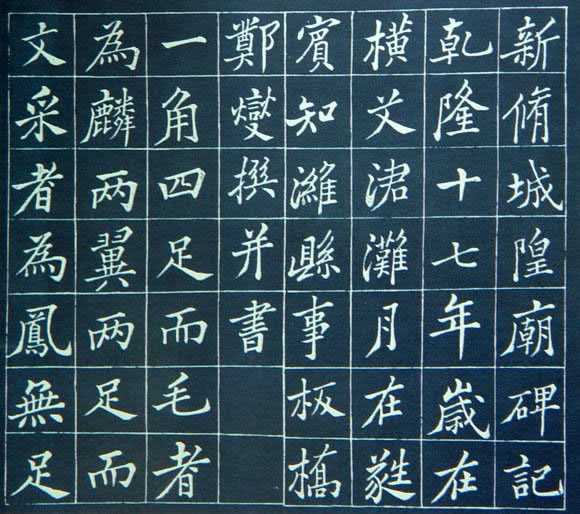 新脩城隍廟碑記
乾隆十七年嵗在
橫艾涒灘月在蕤
賓知濰縣事板橋
鄭燮撰并書
一角四足而毛者
為麟两翼两足而
文采者為鳳無足